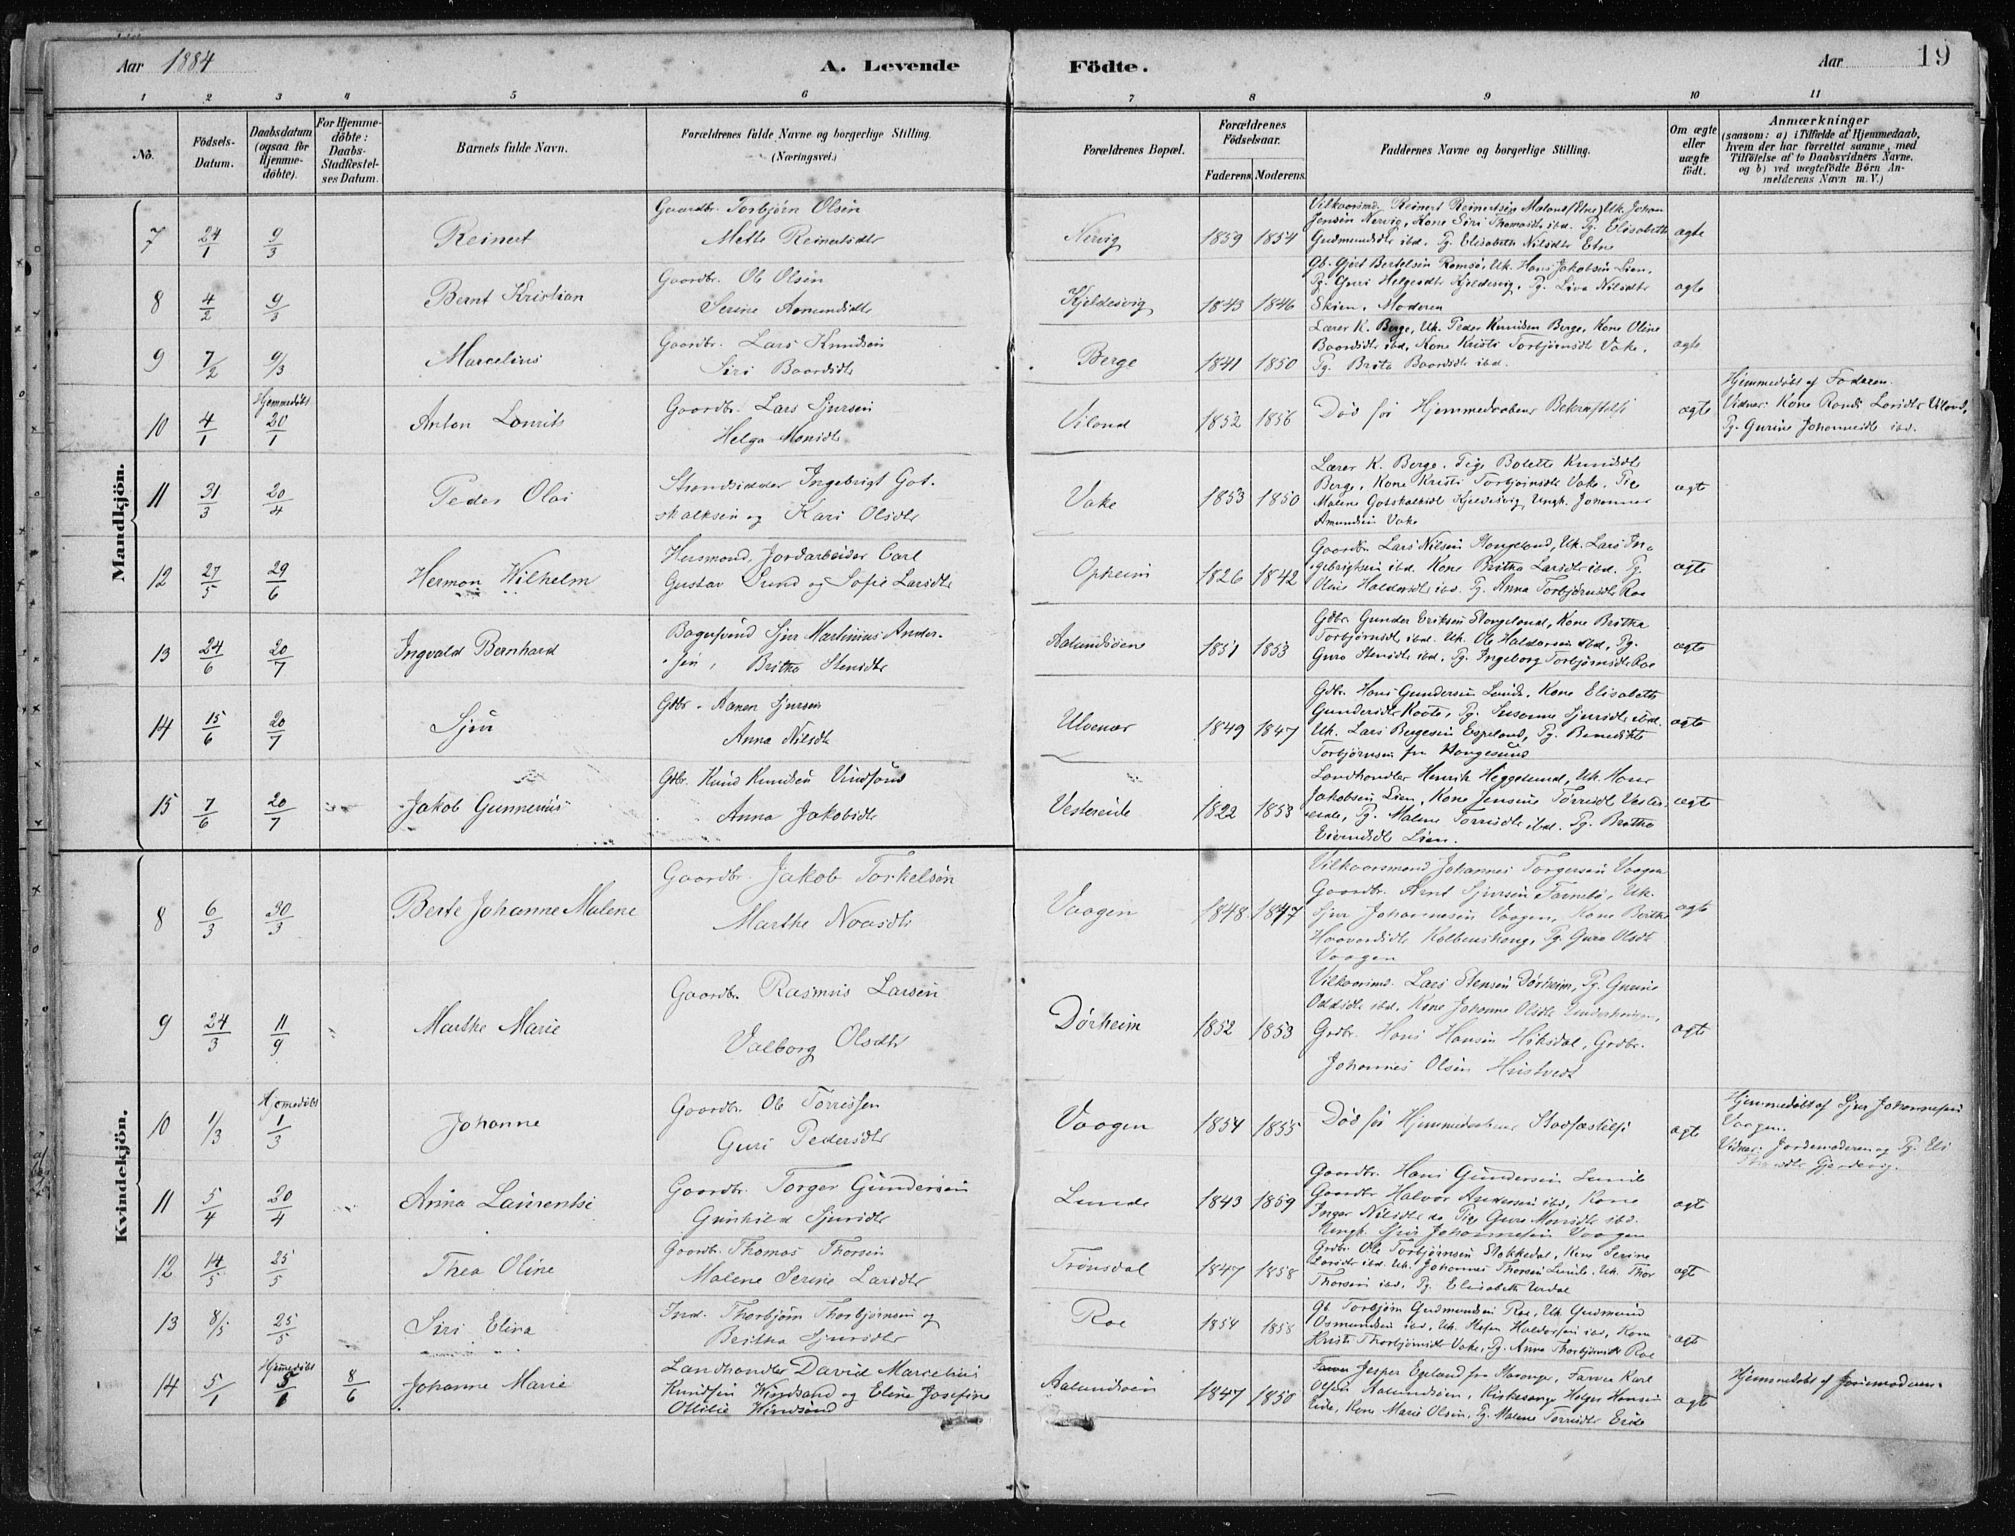 Aar 1884 A. Levende Födte. Aar 19
1 2 3 4 5 6 7 8 9 10 11
No. Födsels-Datum. Daabsdatum (ogsaa for Hjemme-döbte). For Hjemme-döbte: Daabs-Stadfæstel-ses Datum. Barnets fulde Navn. Forældrenes fulde Navne og borgerlige Stilling. (Næringsvei.) Forældrenes Bopæl. Forældrenes Födselsaar. Faderens Moderens. Faddernes Navne og borgerlige Stilling. Om ægte eller uægte födt. Anmærkninger (saasom: a) i Tilfælde af Hjemmedaab, hvem der har forrettet samme, med Tilföielse af to Daabsvidners Navne, og b) ved uægtefödte Börn An-melderens Navn m. V.)
Mandkjön.
7 24/1 9/3 Reinert Gaardbr. Torbjörn Olsen
Mette Reinertsdtr Nervig 1859 1854 ægte
Gudmundsdtr ibd. Pg. Elisabeth Nilsdtr Etne
8 4/2 9/3 Bernt Kristian Gaardbr. Ole Olsen
Serine Amundsdtr Kjeldesvig 1843 1846 ægte
Gb. Gjert Bertelsen Romsö, Uk. Hans Jakobsen Lien,
Pg. Guri Helgesdtr Kjeldesvig, Pg. Liva Nilsdtr
Skien, Moderen
9 7/2 9/3 Marcelius Gaardbr. Lars Knudsen
Siri Baardsdtr Berge 1841 1850 ægte
Lærer K. Berge, Uk. Peder Knudsen Berge, Kone Oline
Baardsdtr ibd, Kone Kristi Torbjørnsdtr Vake,
Pg. Brita Baardsdtr ibd.
10 4/1 Hjemmedöbt 20/1 Anton Laurits Gaardbr. Lars Sjursen
Helga Monsdtr Viland 1852 1856 Död før Hjemmedaabens Bekræftelse ægte
Hjemmedöbt af Faderen.
Vidner: Kone Larsdtr Viland,
Pg. Gurine Johannesdtr ibd.
11 31/3 20/4 Peder Olai Strandsidder Ingebrigt Got-
skalksen og Kari Olsdtr Vake 1853 1850 ægte
Lærer K. Berge. Pige Bolette Knudsdtr
Berge, Kone Kristi Torbjørnsdtr Vake, Pige
Malene Gotskalksdtr Kjeldesvig, Ungk. Johannes
Amundsen Vake
12 27/5 29/6 Herman Wilhelm Husmand, Jordarbeider Carl
Gustav Lund og Sofie Larsdtr Opheim 1826 1842 ægte
Gaardbr. Lars Nilsen Stangeland, Uk. Lars In-
gebrigtsen ibd. Kone Britha Larsdtr ibd. Pg.
Oline Haldorsdtr ibd. Pg. Anna Torbjørnsdtr Roe
13 24/6 20/7 Ingvald Bernhard Bagersvend Sjur Martinius Ander-
sen, Britha Stensdtr Aalundsöen 1851 1853 ægte
Gdbr Gunder Eriksen Stangeland, Kone Britha
Torbjørnsdt ibd. Uk. Ole Haldorsen ibd, Pg.
Guro Stensdtr ibd, Pg. Ingeborg Torbjørnsdtr Roe
14 15/6 20/7 Sjur Gdbr. Aanen Sjursen
Anna Nilsdtr Ulvenæs 1849 1847 ægte
Gdbr. Hans Gundersen Lunde, Kone Elisabeth
Gundersdtr Pg. Susanne Sjursdtr ibd.
Uk. Lars Bergesen Espeland, Pg. Benedikte
Torbjørnsen fra Haugesund
15 7/6 20/7 Jakob Gunnerius Gdbr. Knud Knudsen Vindsand
Anna Jakobsdtr Vestereide 1822 1853 ægte
Landhandler Henrik Heggelund, Uk. Hans
Jakobsen Lien, Kone Jensine Torrisdt Vester-
eide, Pg. Malene Torrisdtr ibd. Pg. Britha
Eivindsdtr Lien.
Kvindekjön.
8 6/3 30/3 Berte Johanne Malene Gaardbr. Jakob Torkelsen
Marthe Noasdtr Vaagen 1848 1847 ægte
Vilkaarsmand Johannes Torgersen Vaagen
Gaardbr. Arnt Sjursen Uk.
Sjur Johannesen Vaagen, Kone Berthe
Haavardsdtr Pg. Guro Olsdt
Vaagen
9 24/3 11/9 Marthe Marie Gaardbr. Rasmus Larsen
Valborg Olsdtr Dörheim 1852 1853 ægte
Vilkaarsmd. Lars Stensen Dörheim, Pg. Gurine
Oddsdtr ibd, Kone Johanne Olsdtr
Grdbr. Hans Hansen Höksdal, Grdbr.
Johannes Olsen
10 1/3 Hjemedöbt 1/3 Johanne Gaardbr. Ole Torressen
Guri Pedersdtr Vaagen 1854 1855 Död før Hjemmedaabens Stadfæstelse ægte
Hjemmedöbt af Sjur Johannesen
Vaagen.
Vidner: Jordemoderen og Pg. Eli
11 5/4 20/4 Anna Laurentse Gaardbr. Torger Gundersen
Gunhild Sjursdtr Lunde 1843 1859 ægte
Gaardbr. Hans Gundersen Lunde
Gaardbr Halvor Andersen ibd, Kone
Inger Nilsdtr do Pige Guro Monsdtr ibd.
Ungk. Sjur Johannesen Vaagen
12 14/5 25/5 Thea Oline Gaardbr. Thomas Thorsen
Malene Serine Larsdtr Trönsdal 1847 1858 ægte
Grdbr. Ole Torbjørnsen Stakkedal, Kone Serine
Larsdtr ibd. Uk. Johannes Thorsen Lunde, Uk. Thor
Thorsen ibd, Pg. Elisabeth
13 8/5 25/5 Siri Elina Ind. Thorbjørn Thorbjørnsen og
Britha Sjursdtr Roe 1854 1858 ægte
Gb Torbjørn Gudmundsen Roe, Uk. Gudmund
Osmundsen ibd, Uk. Haldorsen ibd, Kone
Kristi Thorbjørnsdt Vake, Pg. Anna Thorbjørnsdt Roe
14 5/1 Hjemmedöbt 5/1 8/6 Johanne Marie Landhandler David Marcelius
Knudsen Windsand og Eline Josefine
Ottilie Windsand Aalundsöen 1847 1850 ægte
Jesper Egeland fra Farver Karl
Olsen Aalundsöen, Kirkesanger Helge Hansen
Eide, Kone Marie Olsen, Pg. Malene Torrisdtr Eide
Hjemmedöbt af Jordemoderen.